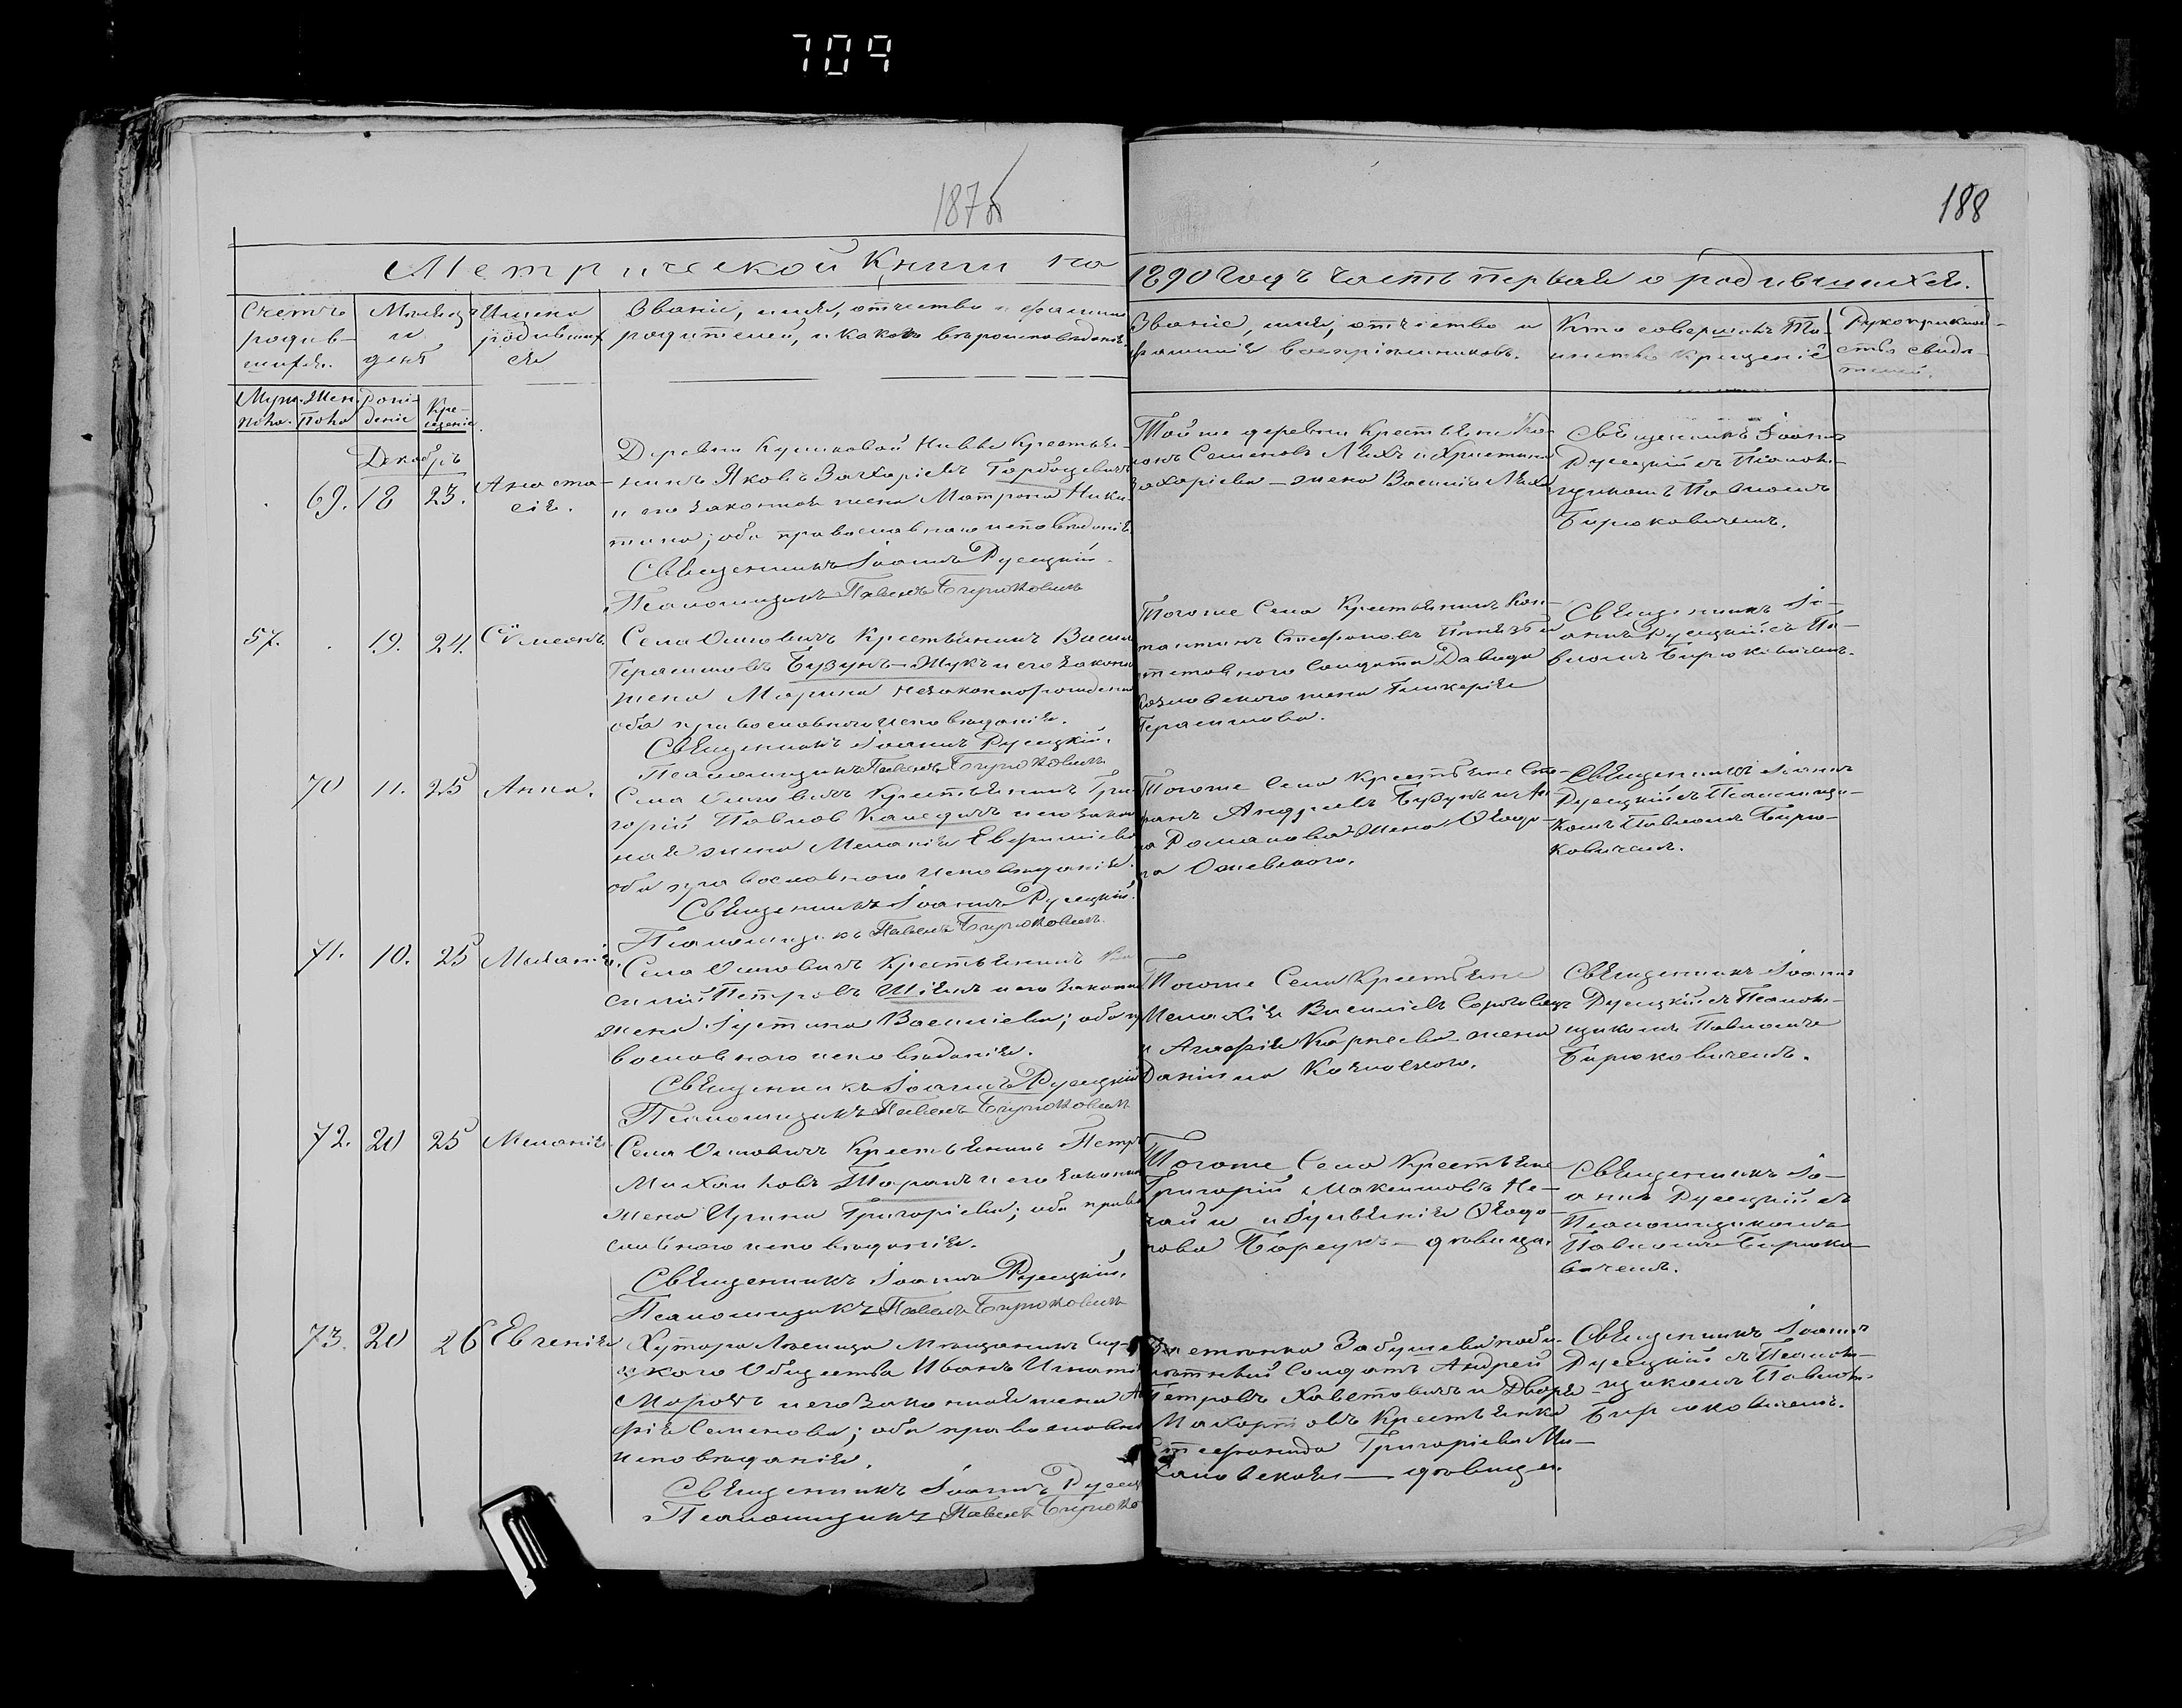 709
187б
188
Метрической Книги на
1890 годъ часть первая о родившихся.
Счетъ родив-
шихся.
Мѣсяцъ
и
день
Имена
родивших
ся
Званіе, имя, отчество и фамилія
родителей, и какого вѣроисповѣданія.
Званіе, имя, отчество и
фамилія воспріемниковъ.
Кто совершалъ Та-
инство Крещенія
Рукоприклад-
ство свидѣ-
телей.
Муж. Жен.
пола. пола
Рож-
деніе
Кре-
щеніе.
Декабрь
69. 18 23. Анаста-
сія.
Деревни Куликовой Нивы Крестья-
нинъ Яковъ Захаріевъ Горбацевичъ
и его законная жена Матрона Ники-
тина; оба православнаго исповѣданія
Священникъ Іоаннъ Русецкій.
Псаломщикъ Павелъ Бирюковичъ
Той же деревни Крестьяне
Семеновъ Ляхъ и Христина
Захаріева - жена Василія Ляха
Священникъ Іоаннъ
Русецкій съ Псалом-
щикомъ Павломъ
Бирюковичемъ.
57. 19. 24. Сѵмеонъ.
Села Осповичъ Крестьянинъ Васил
Герасимовъ Бузунъ-Жукъ и его законн
жена Марина незаконнорожденная
оба православнаго исповѣданія.
Священникъ Іоаннъ Русецкій.
Псаломщикъ Павелъ Бирюковичъ
Тогоже Села Крестьянинъ Кон-
стантинъ Стефановъ
Солдата Давида
Козловскаго жена Гликерія
Герасимова.
Священникъ Іо-
аннъ Русецкій съ Па-
вломъ Бирюковичемъ.
70 11. 25 Анна.
Села Крестьянинъ Гри-
горій Павловъ и его закон
ная жена Меланія Ефиміева
оба православнаго исповѣданія.
Священникъ Іоаннъ Русецкій.
Псаломщикъ Павелъ Бирюковичъ.
Тогоже Села Крестьяне Сте-
фанъ Андреевъ Бузунъ и Ан
на Романова жена Ѳеодо-
ра
Священникъ Іоаннъ
Русецкій съ Псаломщи-
комъ Павломъ Бирю-
ковичемъ.
71. 10. 25 Меланія.
Села Крестьянинъ Ва
силій Петровъ и его законн
жена Іустина Васильева; оба пр
вославнаго исповѣданія.
Священникъ Іоаннъ Русецкій
Псаломщикъ Павелъ Бирюковичъ
Тогоже Села Крестьяне
Василіевъ
и Агафія Карнеева жена
Даніила Козловскаго.
Священникъ Іоаннъ
Русецкій съ Псалом-
щикомъ Павломъ
Бирюковичемъ.
72. 20 25 Меланія.
Села Крестьянинъ Петръ
Михайловъ Таранъ и его законна
жена Ирина Григоріева; оба право
славнаго исповѣданія.
Священникъ Іоаннъ Русецкій.
Псаломщикъ Павелъ Бирюковичъ
Тогоже Села Крестьяне
Григорій Максимовъ Не-
чай и Ѳеодо-
рова - дѣвица.
Священникъ Іо-
аннъ Русецкій съ
Псаломщикомъ
Павломъ Бирюко-
вичемъ.
73. 20 26 Евгенія
Хутора Мѣщанинъ Слу-
цкаго Общества Иванъ Игнаті
Морозъ и его Законная жена Ага
фія Семенова; оба православна
исповѣданія.
Священникъ Іоаннъ Русец
Псаломщикъ Павелъ Бирюко
Солдатъ Андрей
Петровъ и Двора
Крестьянка
Стефанида Григоріева Ми-
халовская - дѣвица.
Священникъ Іоаннъ
Русецкій съ Псалом-
щикомъ Павломъ
Бирюковичемъ.